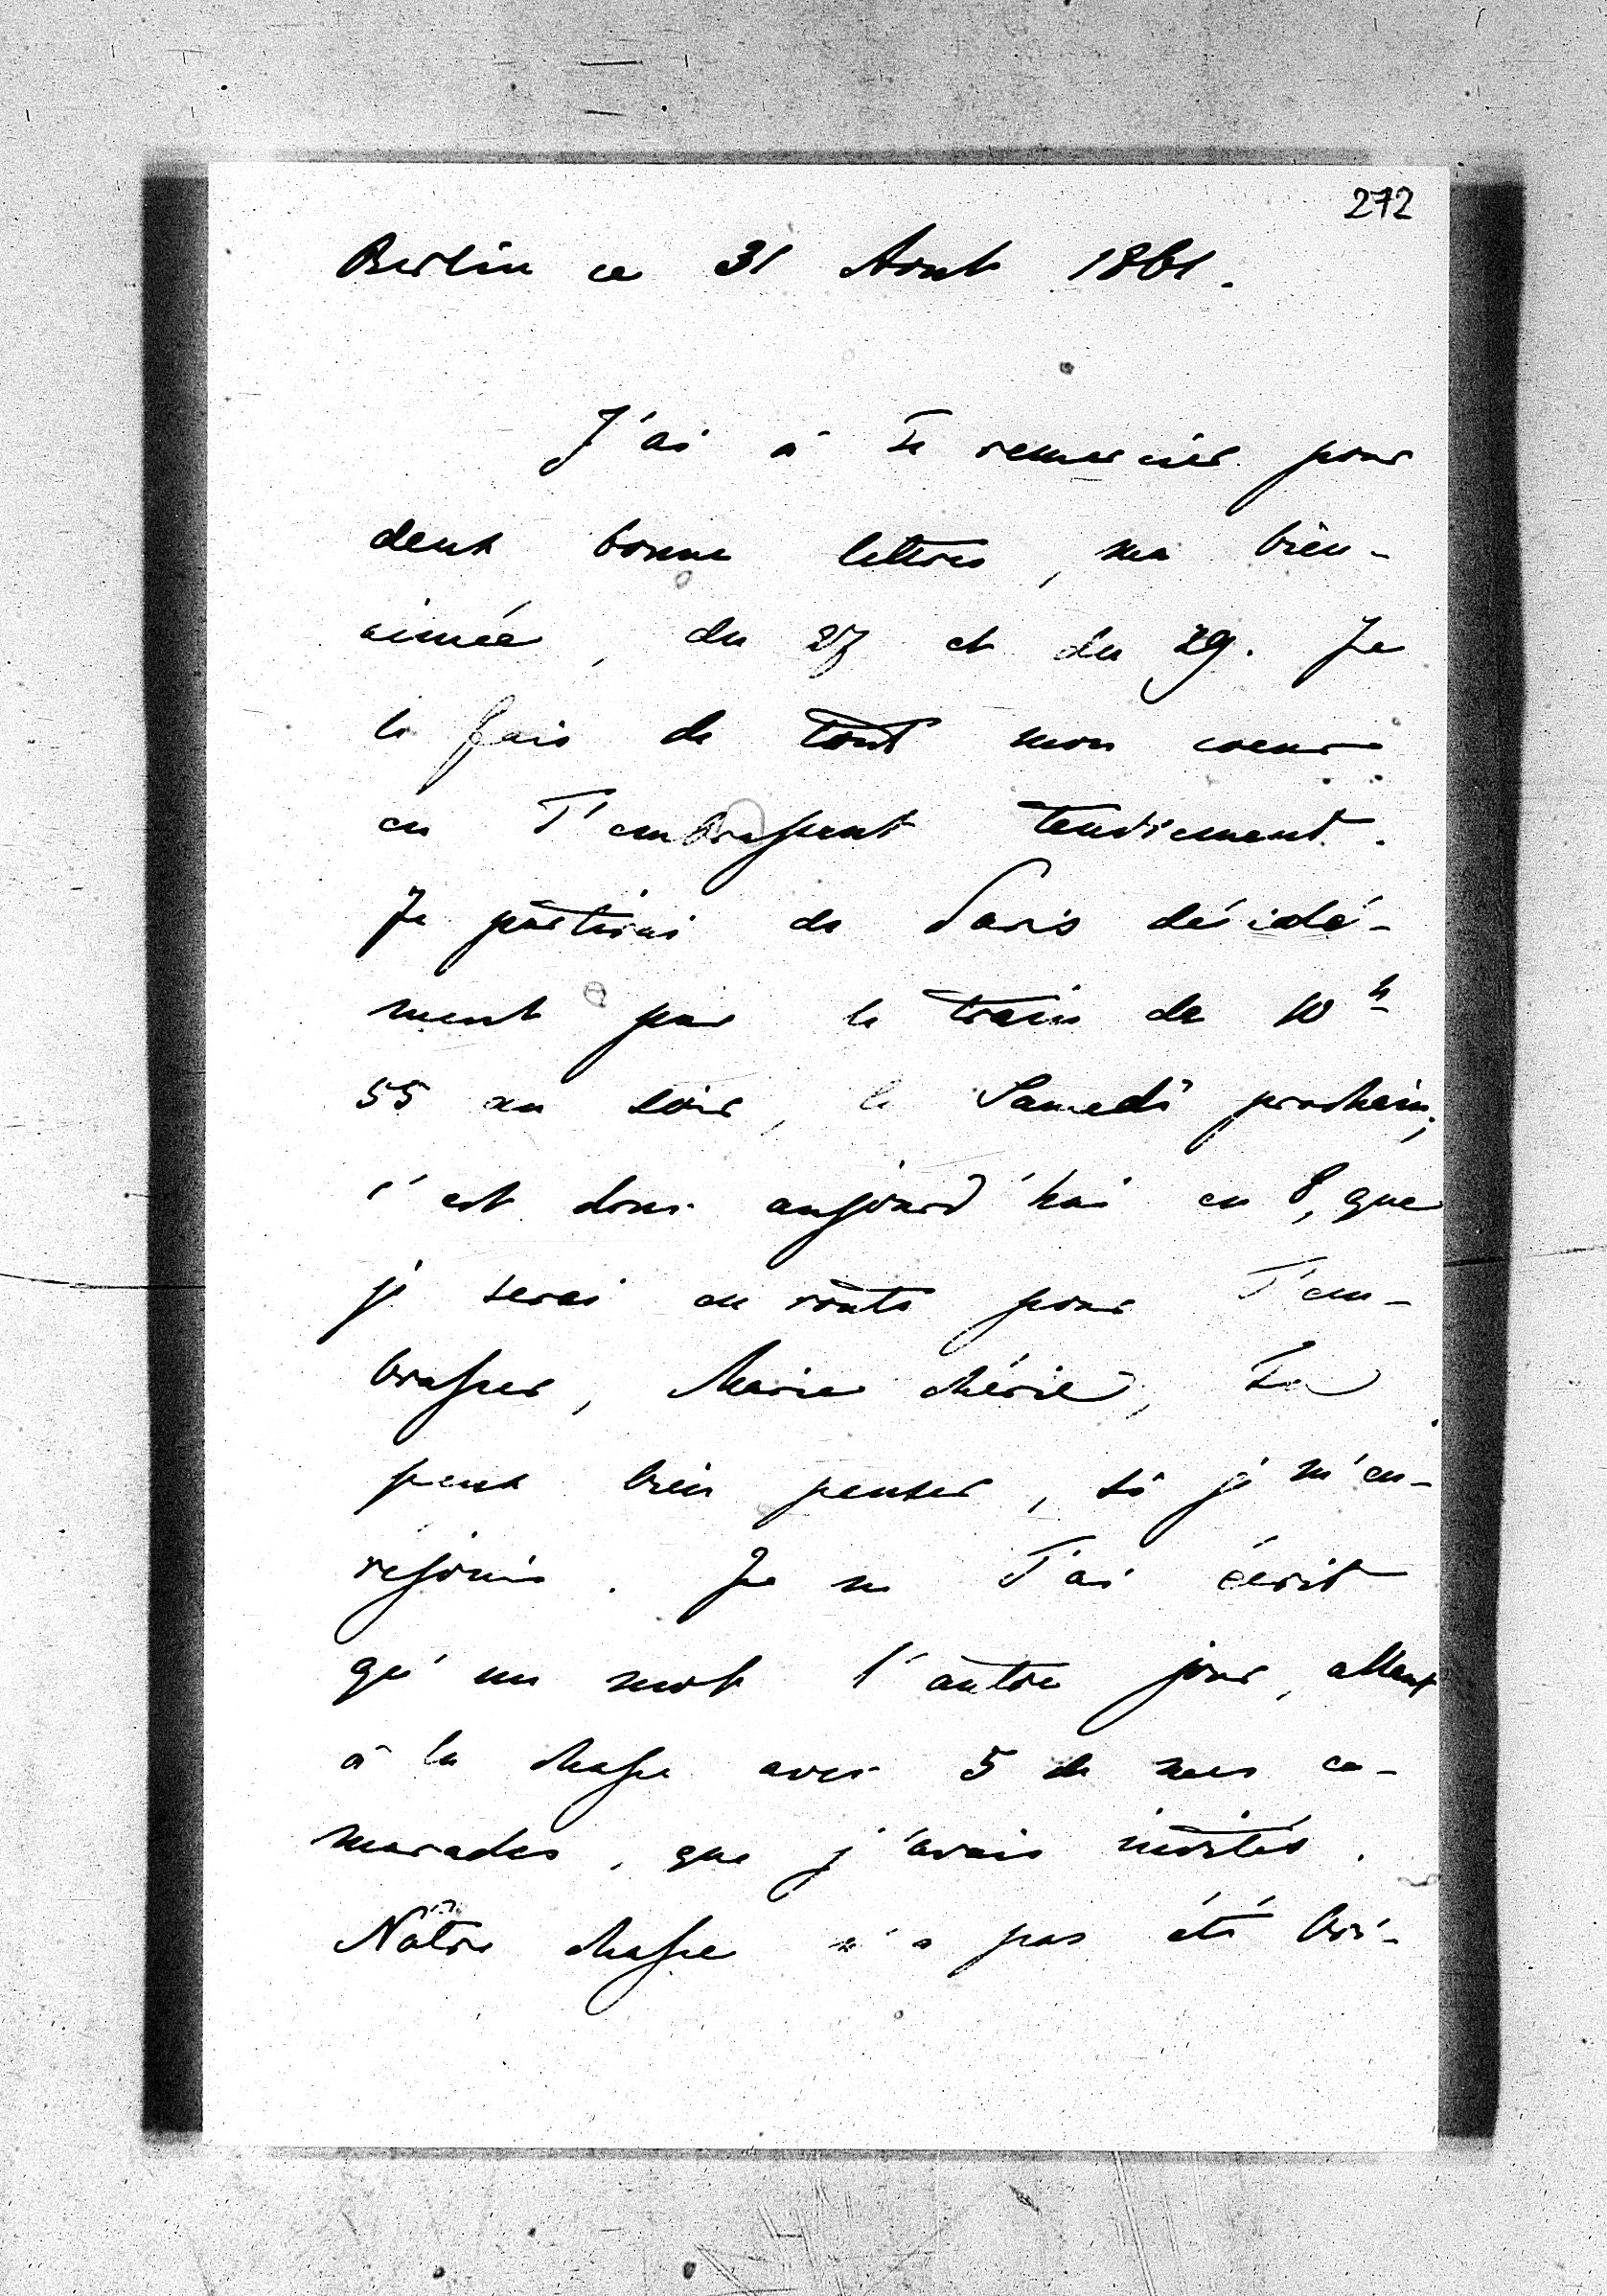 272
Berlin ce 31 Aout 1861.
J'ai à Te remercier pour
deux bonnes lettres, ma bien-
aimée, du 27 et du 29. Je
le fais de tout mon coeur
en T'embrassant tendrement.
Je partirai de Paris décidé-
ment par le train de 10 h
55 au soir, le Samedi prochain,
c'est donc aujourd'hui en 8, que
je serai en route pour T'em-
brasser, Marie chérie, Tu
peux bien penser, si je m'en
rejouis. Je ne T'ai écrit
qu'un mot l'autre jour, allant
à la chasse avec 5 de mes ca-
marades, que j'avais invités.
Nôtre chasse n'a pas été bri-